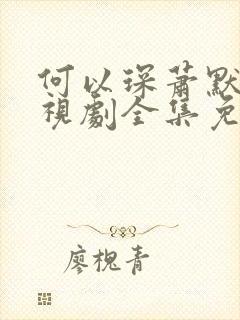 何以琛蕭默
視劇全集免
廖槐青